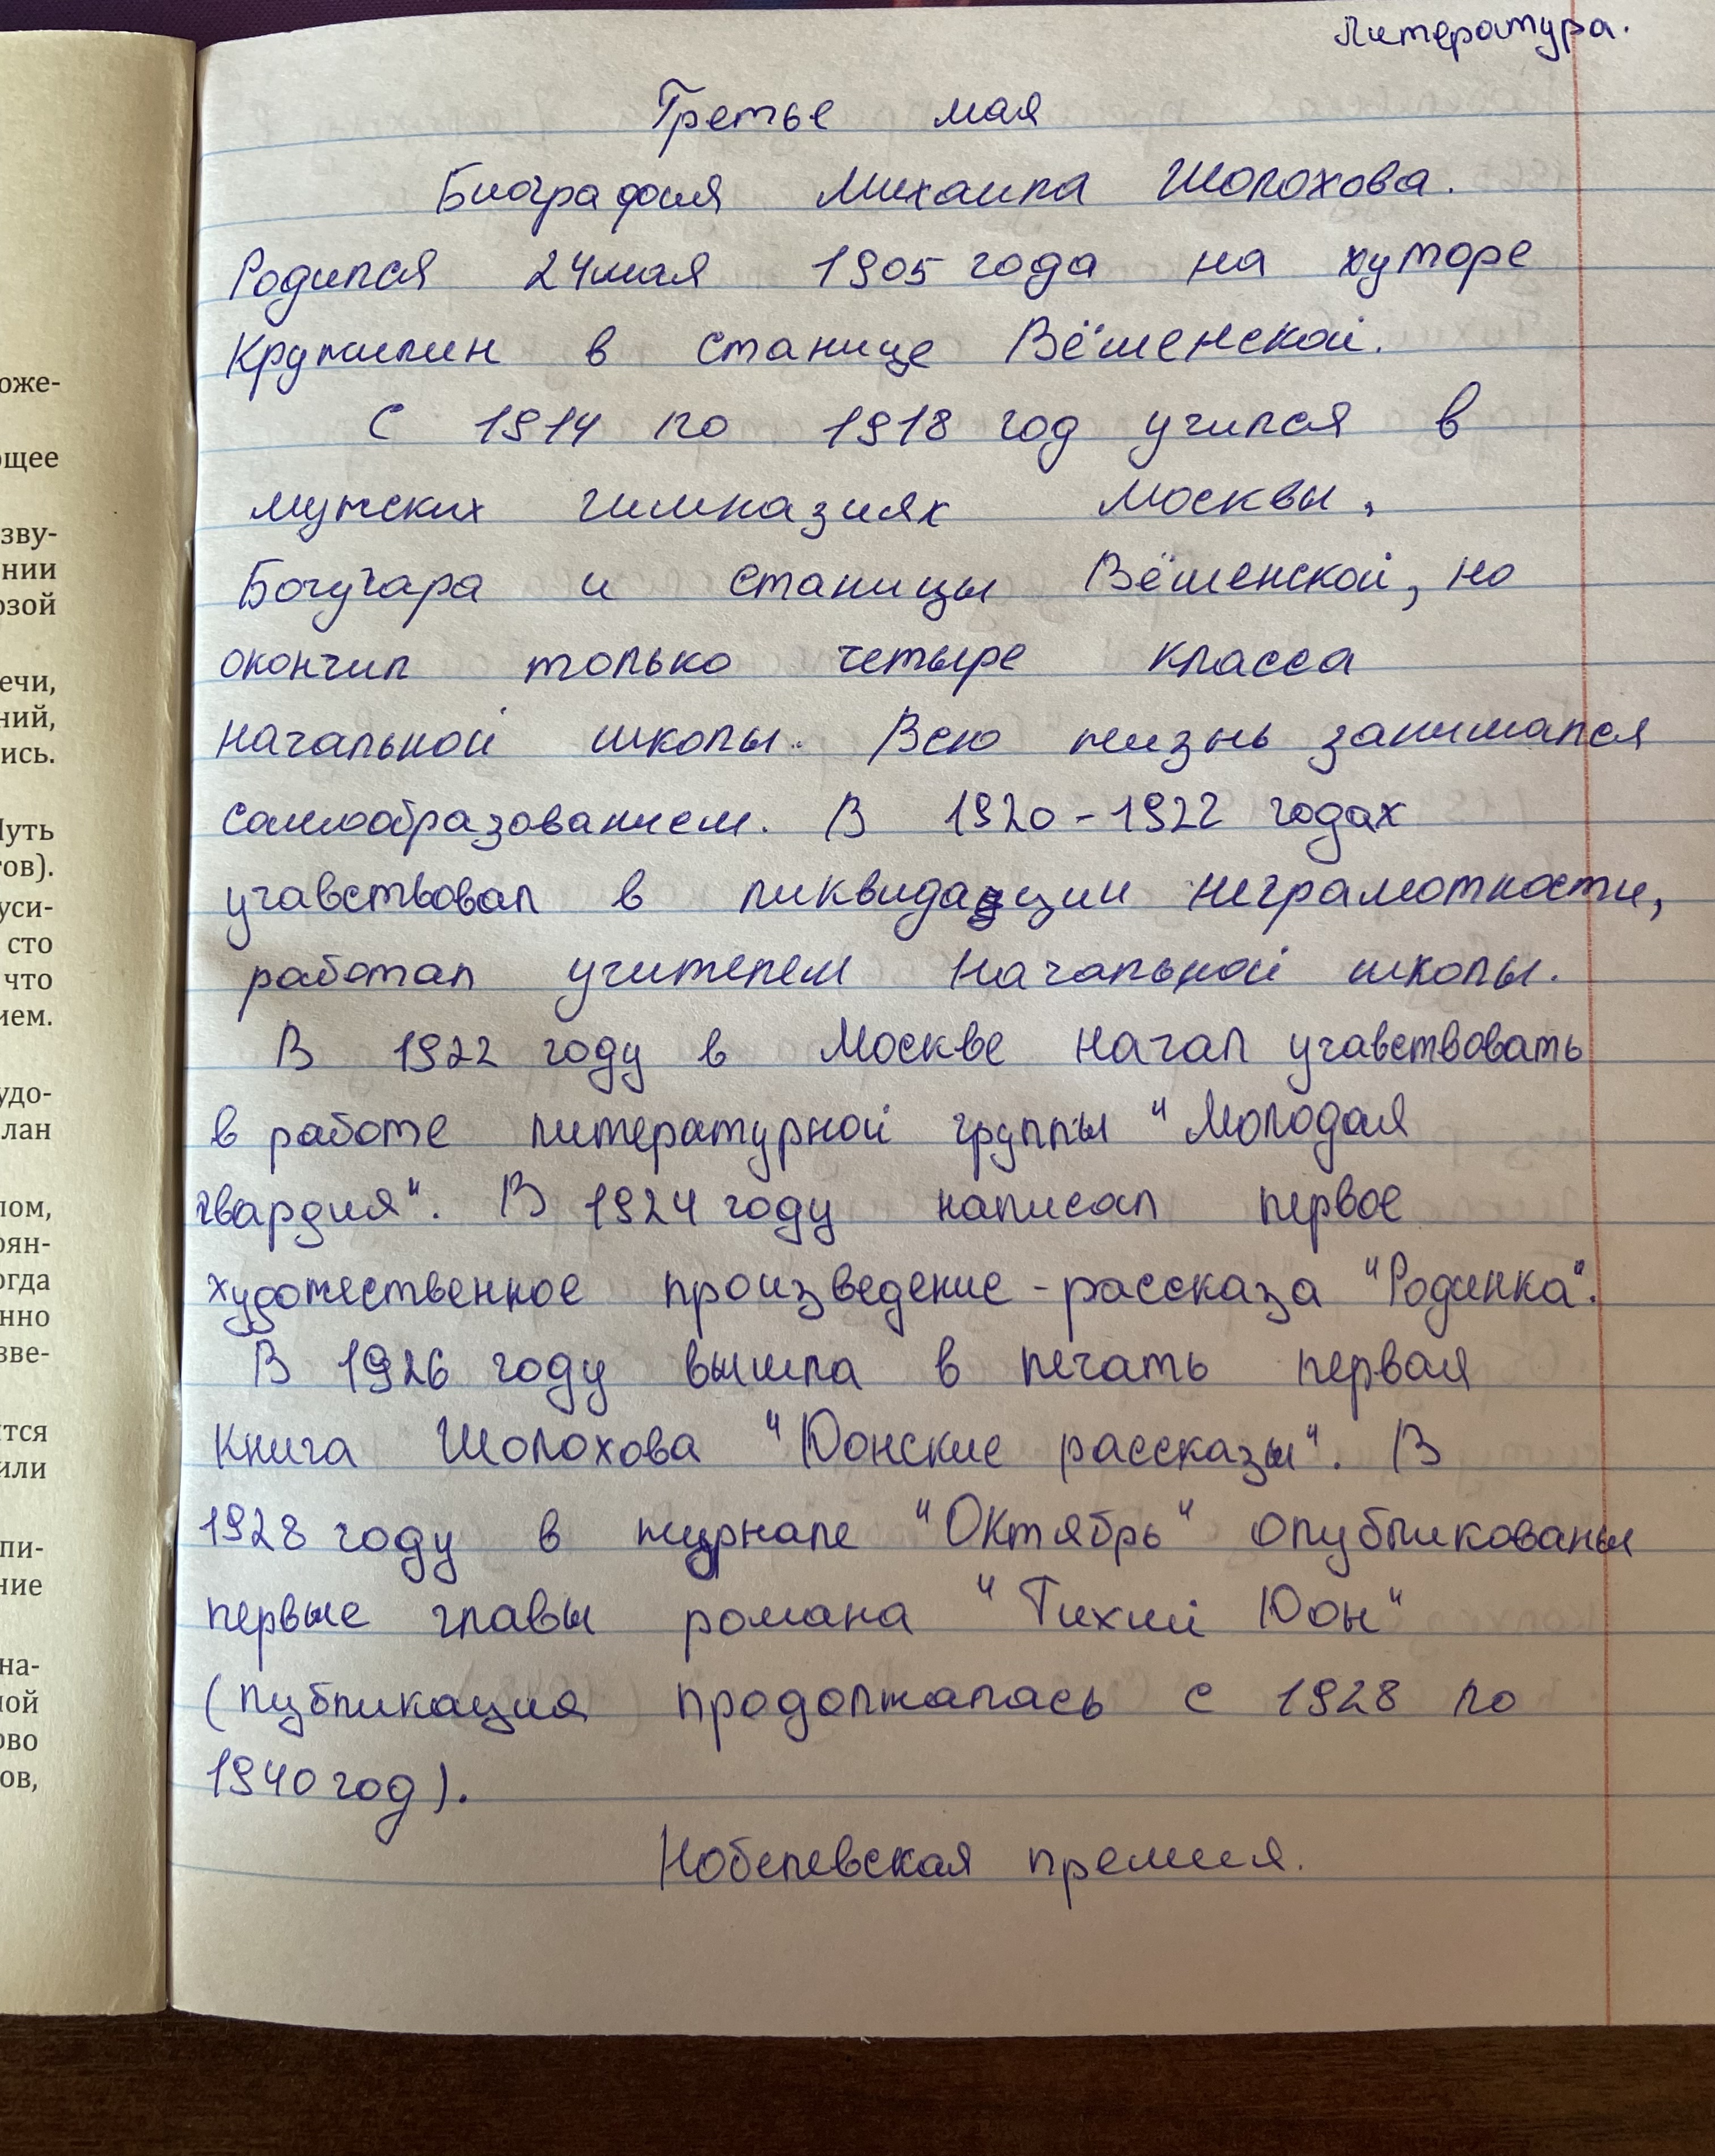 Литература.
Третье мая
Биография Михаила Шолохова.
Родился 24 мая 1905 года на хуторе
Кружилин в станице Вёшенской.
С 1914 по 1918 год учился в
мужских гимназиях Москвы,
Богучара и станицы Вёшенской, но
окончил только четыре класса
начальной школы. Всю жизнь занимался
самообразованием. В 1920-1922 годах
учавствовал в ликвидации неграмотности,
работал учителем начальной школы.
В 1922 году в Москве начал учавствовать
в работе литературной группы "Молодая
гвардия". В 1924 году написал первое
художественное произведение - рассказа "Родинка".
В 1926 году вышла в печать первая
книга Шолохова "Донские рассказы". В
1928 году в журнале "Октябрь" опубликованы
первые главы романа "Тихий Дон"
(публикация продолжалась с 1928 по
1940 год).
Нобелевская премия.
оже-
ющее
зву-
нии
озой
ечи,
ний,
ись.
Чуть
тов).
уси-
сто
что
ием.
удо-
лан
лом,
оян-
огда
нно
зве-
ится
или
пи-
ние
на-
ной
ово
ов,